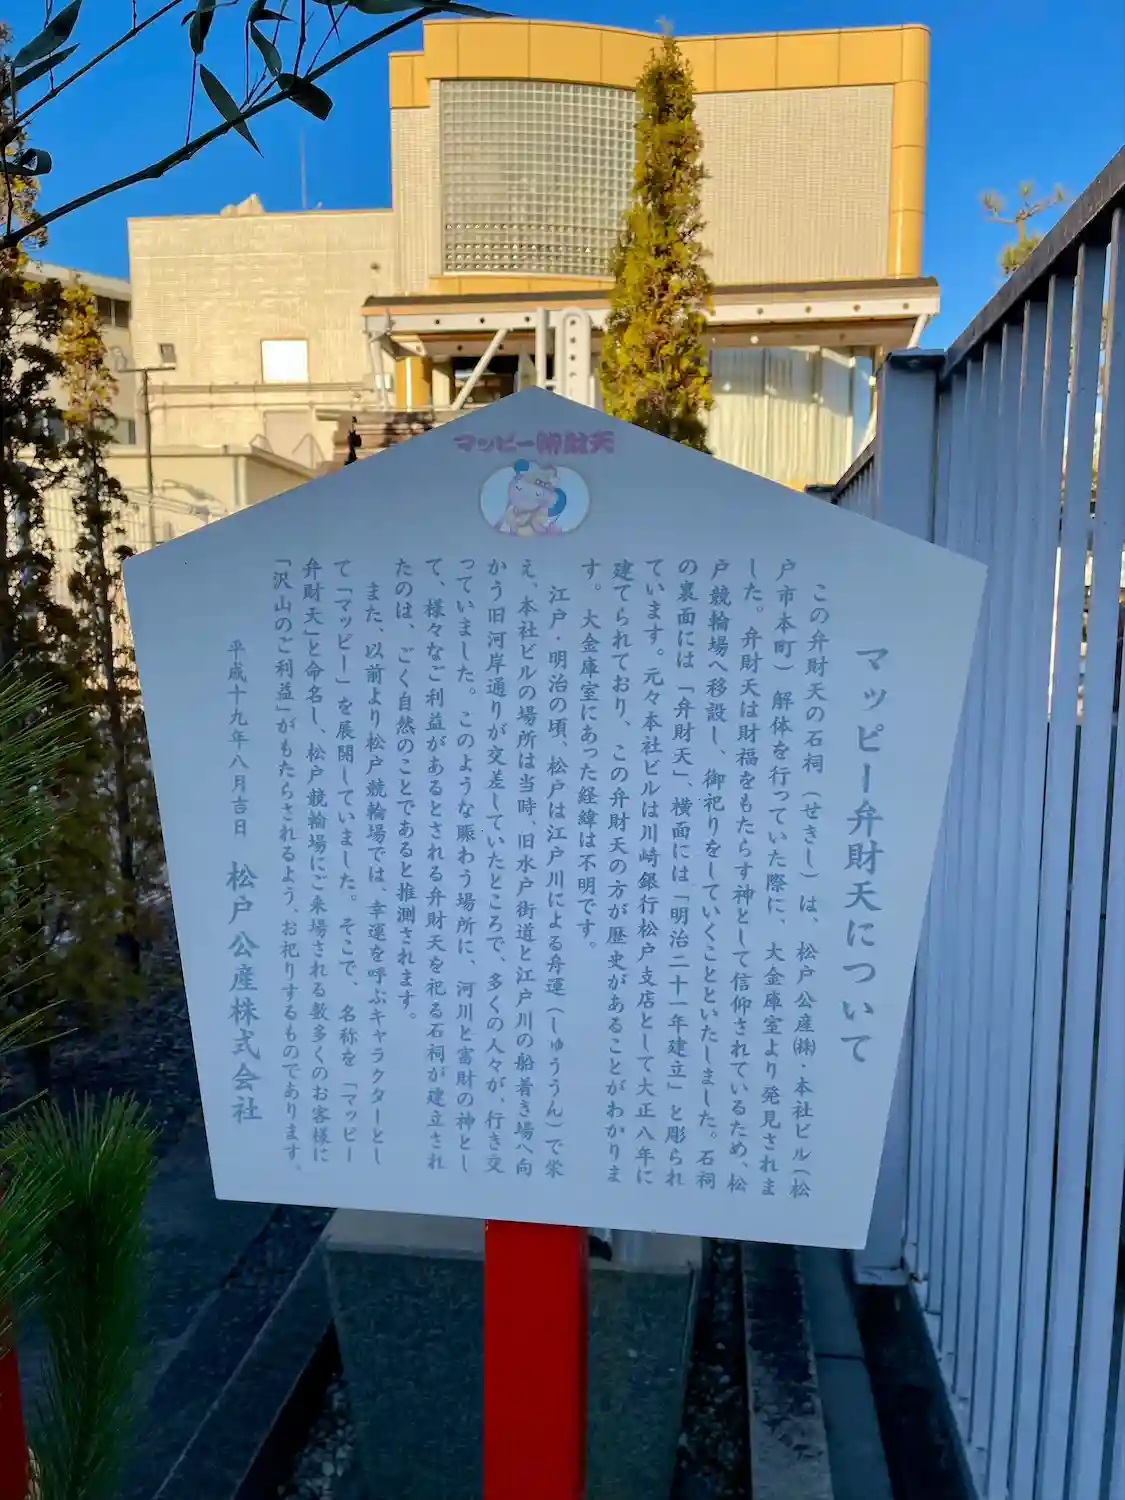 マッピー辨財天
マッピー弁財天について
この弁財天の石祠(せきし)は、松戸公産㈱・本社ビル(松
戸市本町)解体を行っていた際に、大金庫室より発見されま
した。弁財天は財福をもたらす神として信仰されているため、松
戸競輪場へ移設し、御祀りをしていくことといたしました。石祠
の裏面には「弁財天」、横面には「明治二十一年建立」と彫られ
ています。元々本社ビルは川崎銀行松戸支店として大正八年に
建てられており、この弁財天の方が歴史があることがわかりま
す。大金庫室にあった経緯は不明です。
江戸・明治の頃、松戸は江戸川による舟運(しゅううん)で栄
え、本社ビルの場所は当時、旧水戸街道と江戸川の船着き場へ向
かう旧河岸通りが交差していたところで、多くの人々が、行き交
っていました。このような賑わう場所に、河川と富財の神とし
て、様々なご利益があるとされる弁財天を祀る石祠が建立され
たのは、ごく自然のことであると推測されます。
また、以前より松戸競輪場では、幸運を呼ぶキャラクターとし
て「マッピー」を展開していました。そこで、名称を「マッピー
弁財天」と命名し、松戸競輪場にご来場される数多くのお客様に
「沢山のご利益」がもたらされるよう、お祀りするものであります。
平成十九年八月吉日 松戸公産株式会社